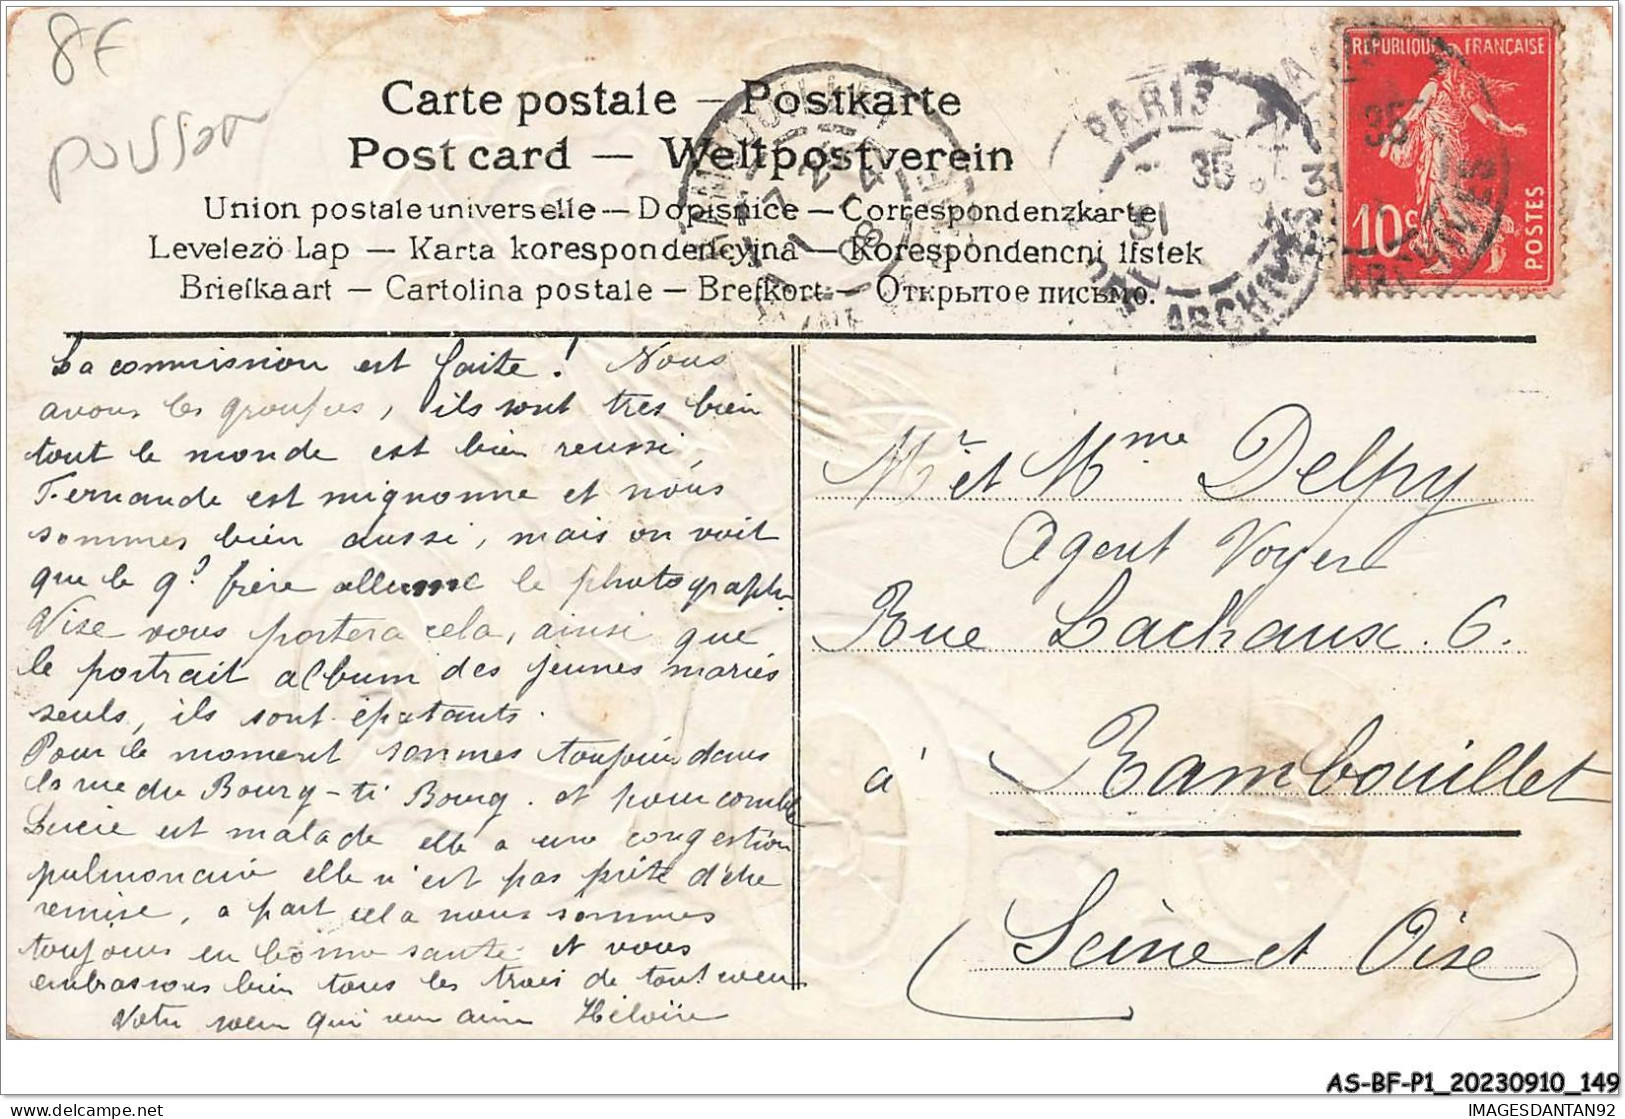 8F
poisson
Carte postale — Postkarte
Post card — Weltpostverein
Union postale universelle — Dopisnice — Correspondenzkarte
Levelezö Lap — Karta korespondencyjna — Korespondencni listek
Briefkaart — Cartolina postale — Brefkort — Открытое письмо.
REPUBLIQUE FRANÇAISE
10c
POSTES
PARIS
35
31
ARCHIVES
RAMBOUILLET
La commission est faite! Nous
avons les groupes, ils sont tres bien
tout le monde est bien reussi,
Fernande est mignonne et nous
sommes bien aussi, mais on voit
que le gd frère allume le photographe
Vise vous portera cela, ainsi que
le portrait album des jeunes mariés
seuls, ils sont épatants.
Pour le moment sommes toujours dans
la rue du Bourg-ti Bourg. et pour comble
Lucie est malade elle a une congestion
pulmonaire elle n'est pas prête d'etre
remise, a part cela nous sommes
toujours en bonne santé et vous
embrassons bien tous les trois de tout coeur
Votre soeur qui vous aime Héloïse
Mr et Mme Delpy
Agent Voyer
Rue Lachaux. 6.
à Rambouillet
(Seine et Oise)
AS-BF-P1_20230910_149
delcampe.net
IMAGESDANTAN92